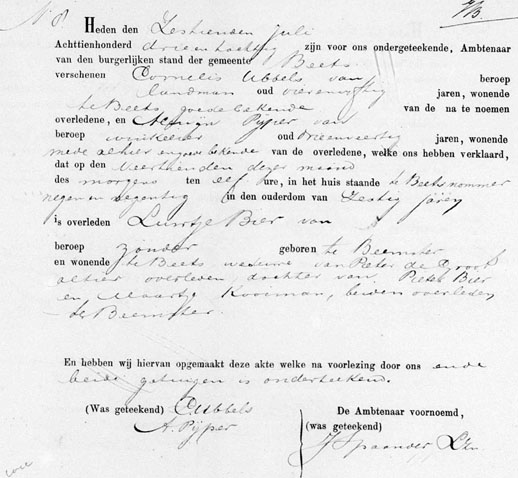 N 8
Heden den Zestienden juli
Achttienhonderd drieentachtig zijn voor ons ondergeteekende, Ambtenaar
van den burgerlijken stand der gemeente Beets
verschenen Cornelis Ubbels van beroep
landman oud vierenvijftig jaren, wonende
te Beets, goede bekende van de na te noemen
overledene, en Pijper van
beroep winkelier oud drieenveertig jaren, wonende
mede alhier bekende van de overledene, welke ons hebben verklaard,
dat op den Veertienden dezer maand
des morgens ten elf ure, in het huis staande te Beets nommer
negen en negentig in den ouderdom van Zestig jaren
is overleden Luurtje Bier van
beroep zonder geboren te Beemster
en wonende te Beets weduwe van Pieter de Groot
alhier overleden dochter van Pieter Bier
en Maartje Kooiman, beiden overleden
te Beemster.
En hebben wij hiervan opgemaakt deze akte welke na voorlezing door ons ende
beide getuigen is onderteekend.
(Was geteekend) C. Ubbels
A. Pijper
De Ambtenaar voornoemd,
(was geteekend)
J Spaander